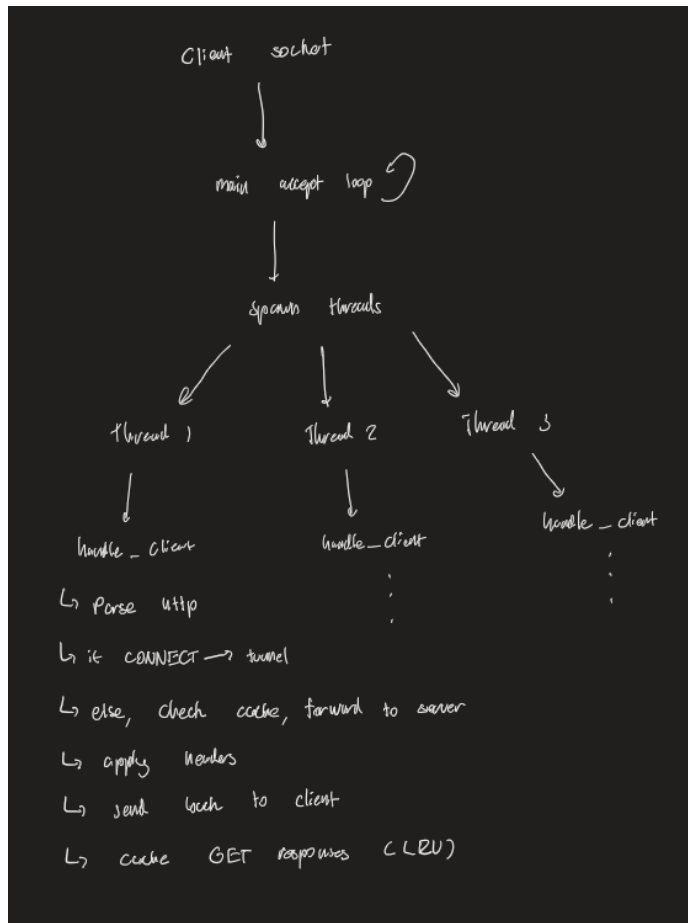 Client socket
main accept loop
spawn threads
Thread 1
Thread 2
Thread 3
handle_client
handle_client
handle_client
Parse http
if CONNECT → tunnel
else, check cache, forward to server
apply headers
send back to client
cache GET responses (LRU)